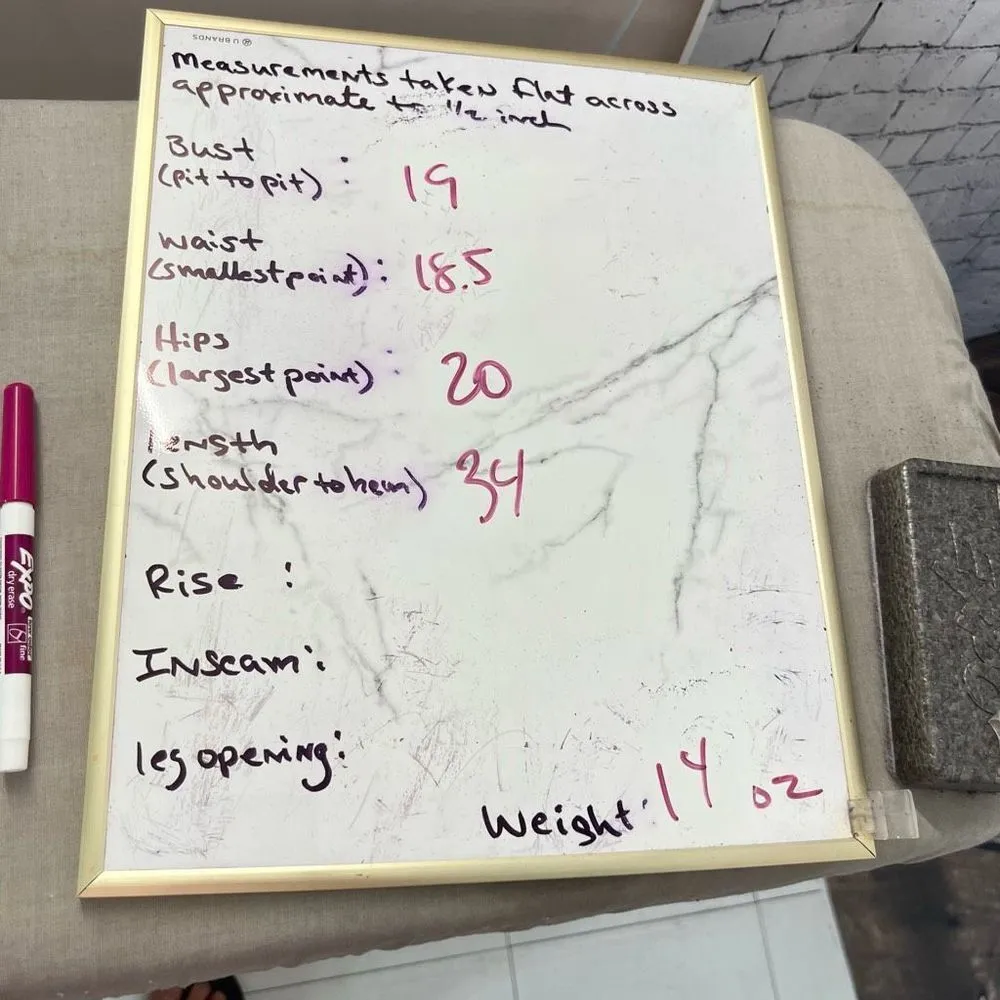 U BRANDS
Measurements taken flat across
approximate to 1/2 inch
Bust
(pit to pit) : 19
Waist
(smallest point): 18.5
Hips
(largest point) : 20
Length
(shoulder to hem) 34
Rise :
Inseam:
leg opening:
Weight: 14 oz
EXPO
dry erase
fine